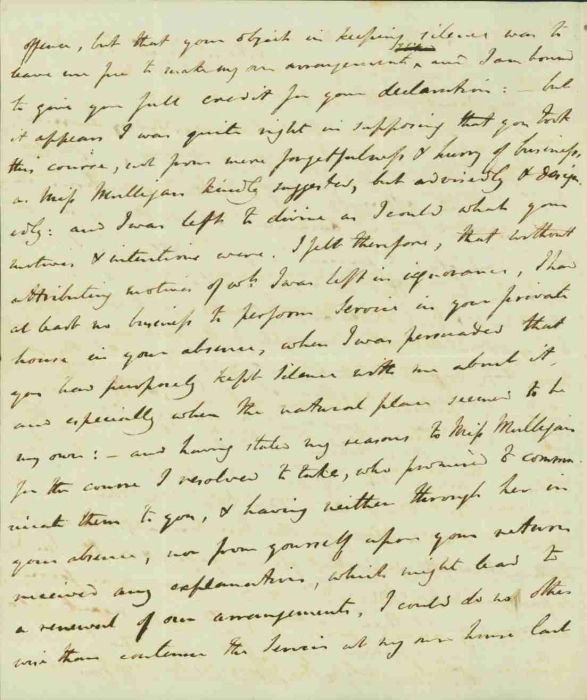 offence, but that your object in keeping silence was to
leave me free to make my own arrangements, and I am bound
to give you full credit for your declaration: – but
it appears I was quite right in supposing that you took
this course, not from mere forgetfulness & hurry of business,
as Miss Mulligan kindly suggested, but advisedly & design-
edly: and I was left to divine as I could what your
motives & intentions were. I felt therefore, that without
attributing motives of wh. I was left in ignorance, I had
at least no business to perform Service in your private
house in your absence, when I was persuaded that
you had purposely kept silence with me about it,
and especially when the natural place seemed to be
my own: – and having stated my reasons to Miss Mulligan
for the course I resolved to take, who promised to commu-
nicate them to you, & having neither through her in
your absence, nor from yourself upon your return
received any explanation, which might lead to
a renewal of our arrangements, I could do no other
wise than continue the Service at my own house last